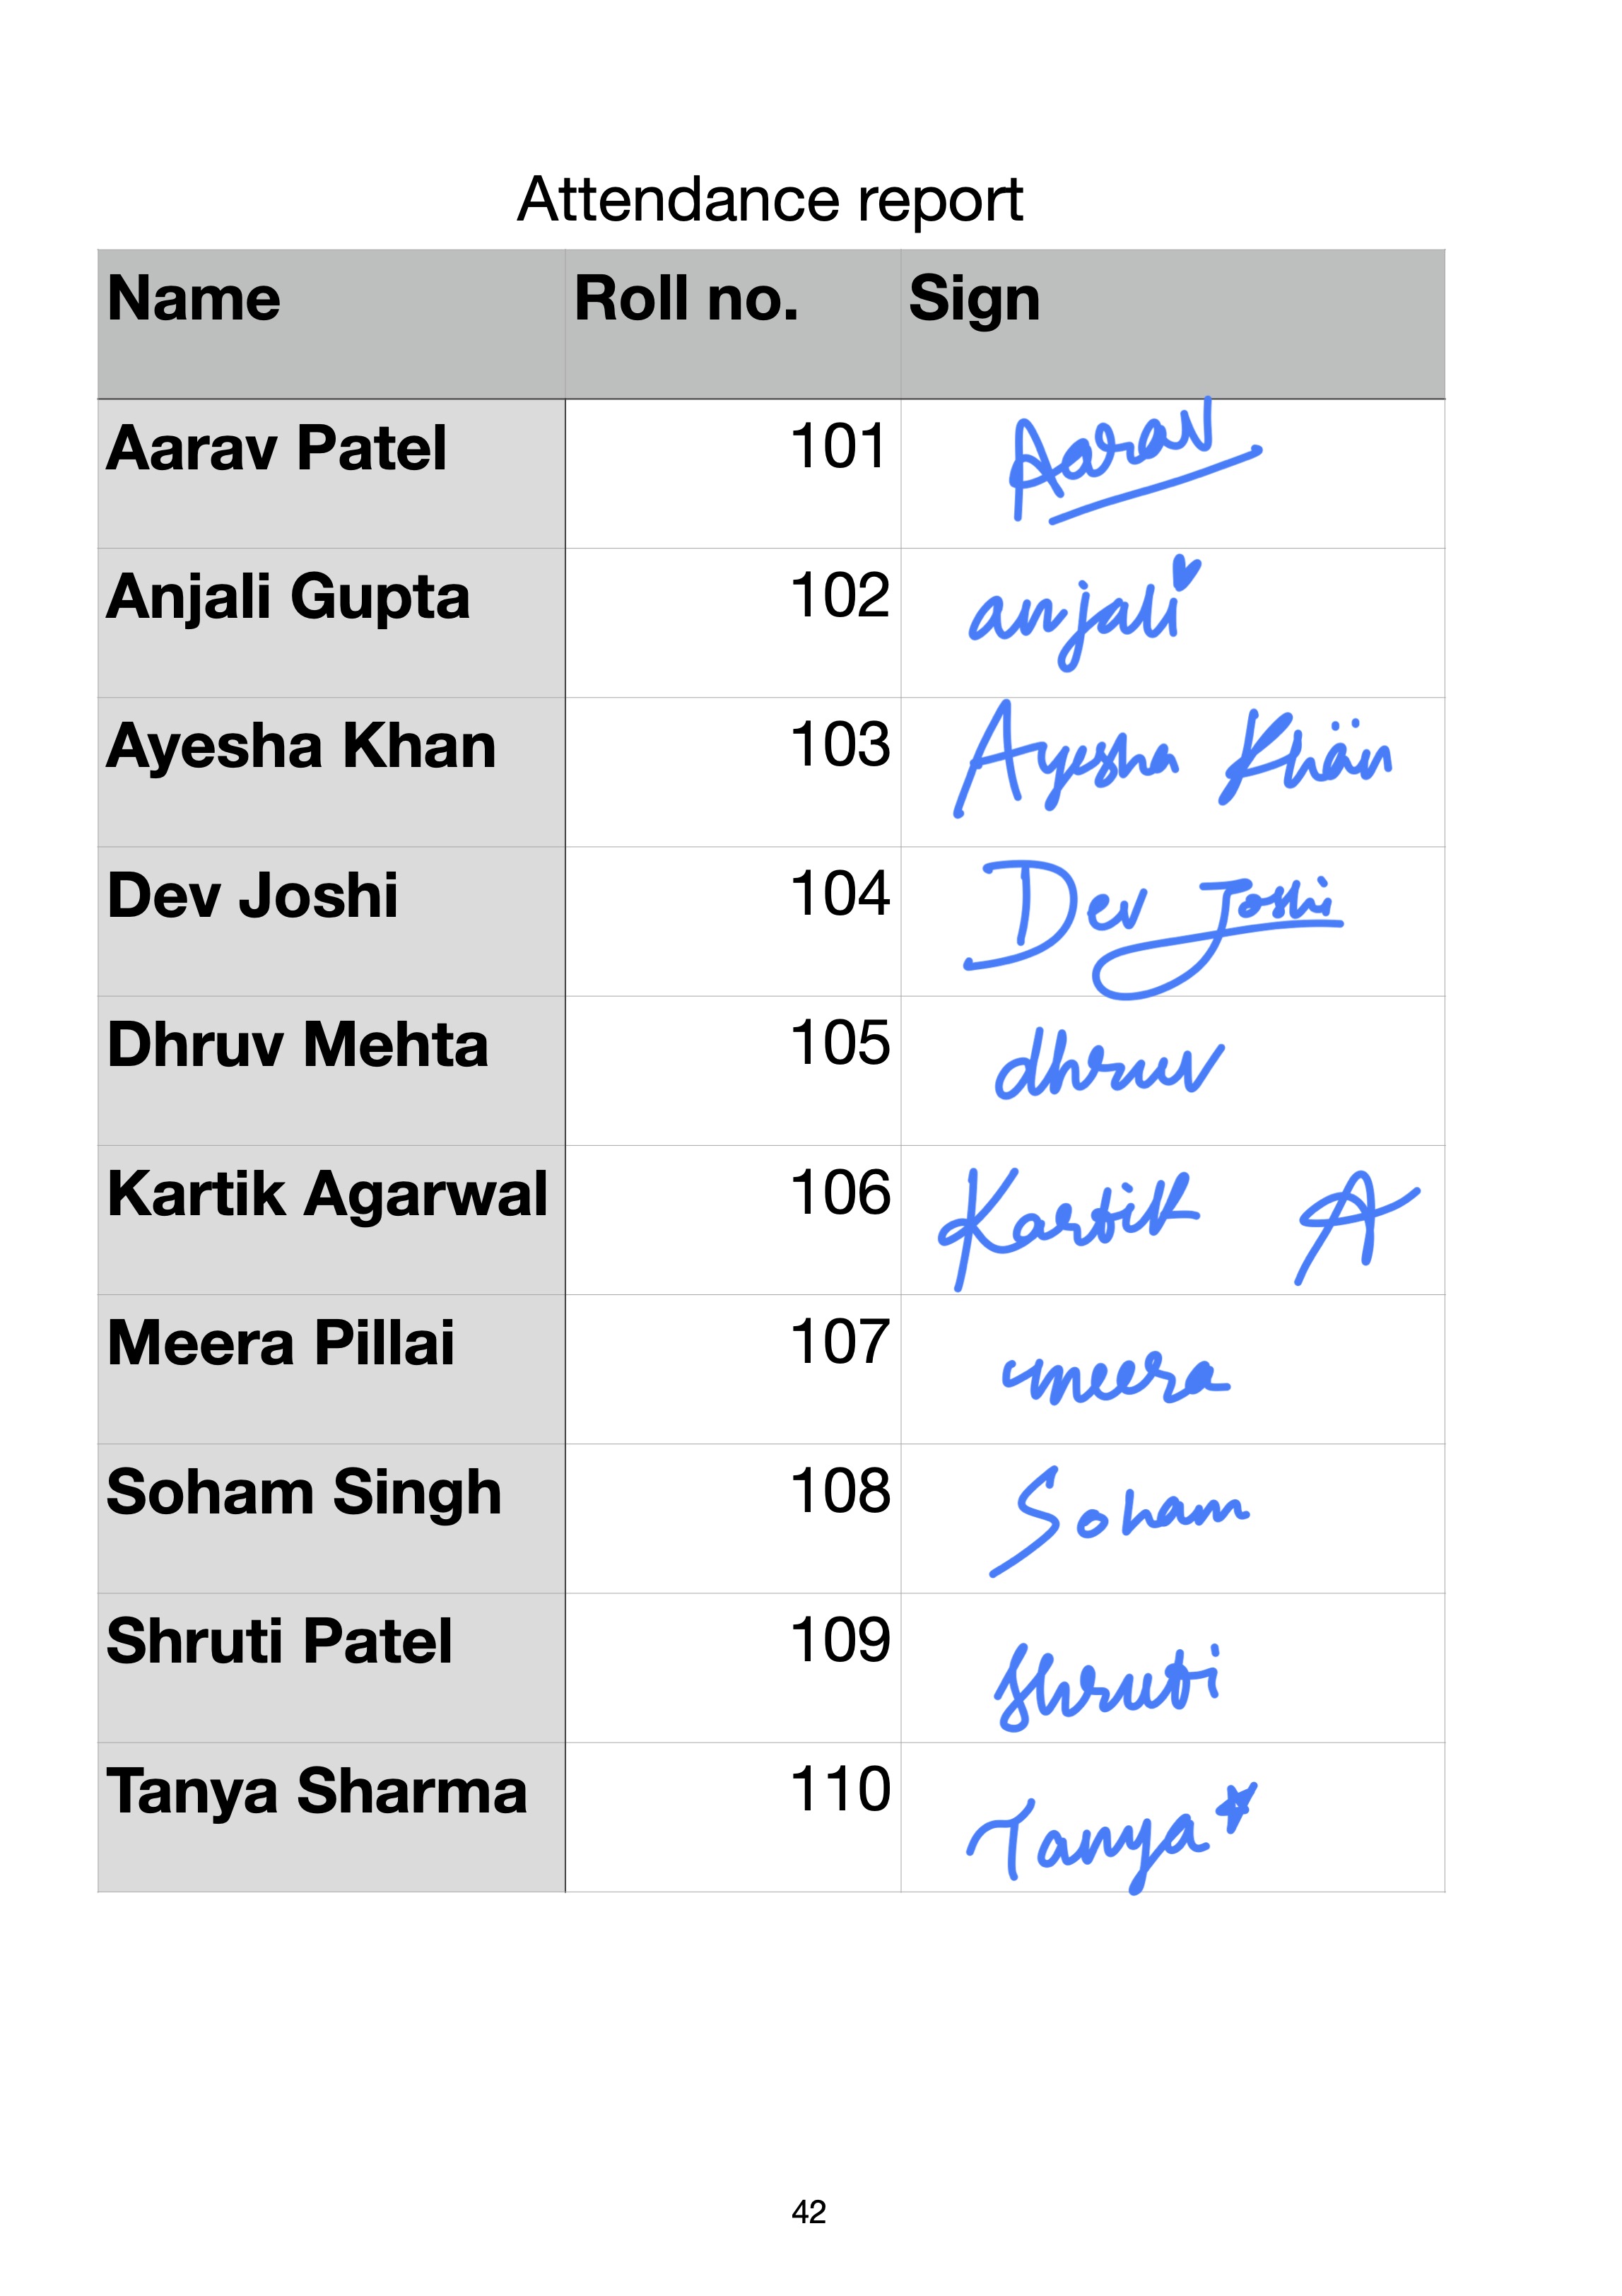 Attendance report
Name Roll no. Sign
Aarav Patel 101 Aarav
Anjali Gupta 102 anjali
Ayesha Khan 103 Ayesha Khan
Dev Joshi 104 Dev Joshi
Dhruv Mehta 105 dhruv
Kartik Agarwal 106 Kartik A
Meera Pillai 107 meera
Soham Singh 108 Soham
Shruti Patel 109 Shruti
Tanya Sharma 110 Tanya
42